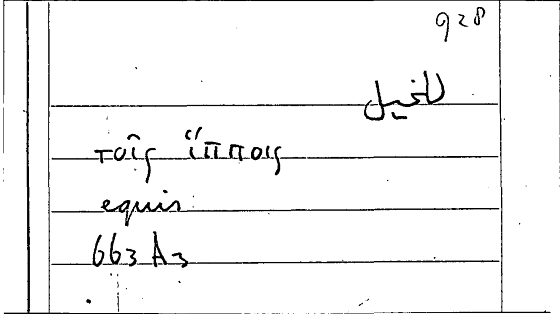 928
للخيل
τοῖς ἵπποις
equis
663 A3